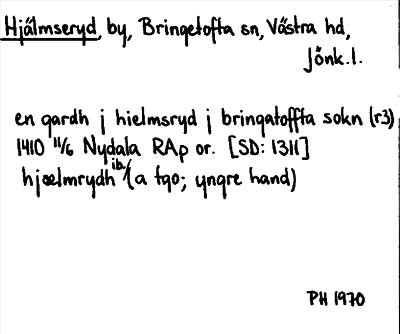 Hjälmseryd, by, Bringetofta sn, Västra hd,
Jönk. l.
en gardh j hielmsryd j bringatoffta sokn (r3)
1410 11/6 Nydala RAp or. [SD: 1311]
hjælmrydh ib. (a tgo; yngre hand)
PH 1970